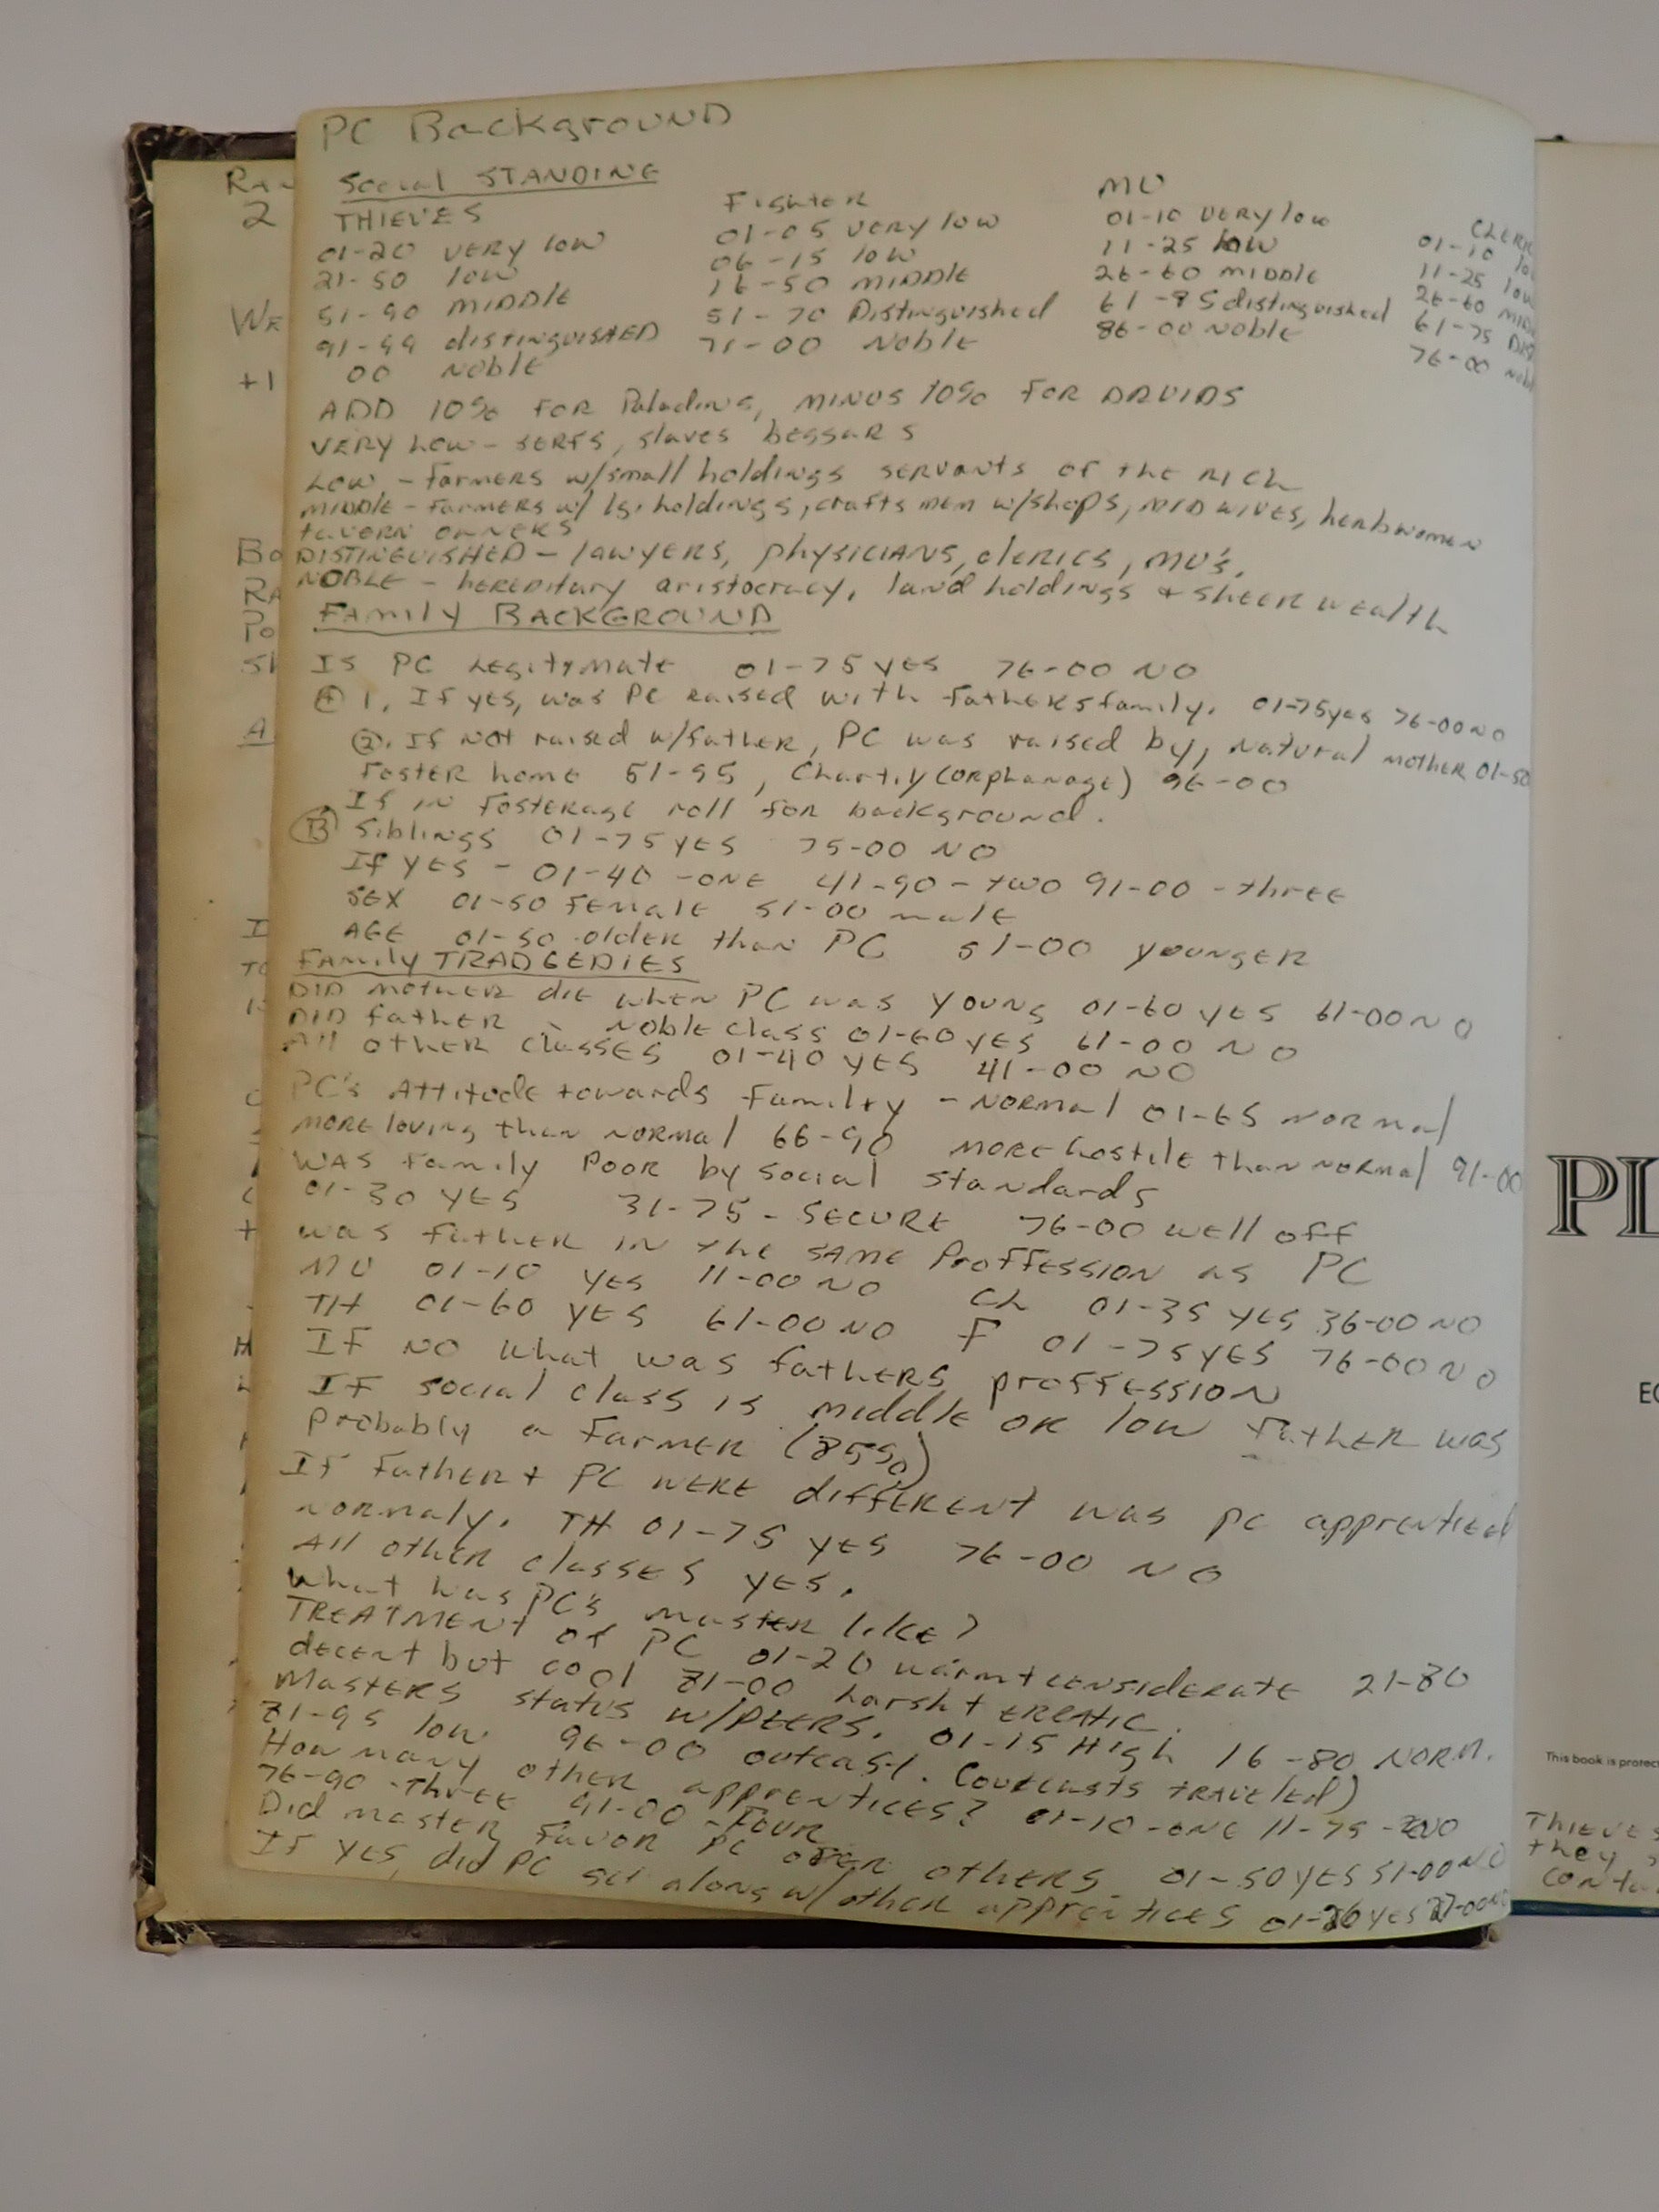 PC Background
Social STANDING
THIEVES
01-20 VERY low
21-50 low
51-90 MIDDLE
91-99 distinguisHED
00 Noble
Fighter
01-05 VERY low
06-15 low
16-50 MIDDLE
51-70 Distinguished
71-00 Noble
MU
01-10 VERY low
11-25 low
26-60 MIDDLE
61-85 distinguished
86-00 Noble
01-10
11-25 low
26-60
61-75
76-00
ADD 10% FOR Paladins, MINUS 10% FOR DRUIDS
VERY LOW - SERFS, slaves beggars
LOW - farmers w/small holdings servants of the RICH
MIDDLE - farmers w/ lg. holdings, crafts men w/shops, MID WIVES, herbwomen
tavern owners
DISTINGUISHED - lawyers, physicians, clerics, MU's.
NOBLE - hereditary aristocracy, land holdings + sheer wealth
Family BACKGROUND
Is PC Legitymate 01-75 yes 76-00 NO
Ⓐ 1. If yes, was PC raised with fathers family. 01-75 yes 76-00 NO
②. If NOT raised w/father, PC was raised by, Natural mother 01-50
Foster home 51-95, (orphanage) 96-00
If in Fosterage roll for background.
Ⓑ Siblings 01-75 yes 75-00 NO
If YES - 01-40 - one 41-90 - two 91-00 - three
SEX 01-50 female 51-00 male
AGE 01-50 older than PC 51-00 younger
Family TRADGEDIES
DID mother die when PC was young 01-60 yes 61-00 NO
DID father " Noble class 01-60 yes 61-00 NO
All other classes 01-40 yes 41-00 NO
PC's Attitude towards family - NORMAL 01-65 normal
MORE loving than normal 66-90 more hostile than normal 91-00
WAS family Poor by social standards
01-30 yes 31-75 - SECURE 76-00 well off
was father in the same Proffession as PC
MU 01-10 yes 11-00 NO CL 01-35 yes 36-00 NO
TH 01-60 yes 61-00 NO F 01-75 yes 76-00 NO
If NO what was fathers proffession
If social class is middle or low father was
probably a farmer (85%)
If Father + PC were different was pc apprenticed
normaly. TH 01-75 yes 76-00 NO
All other classes yes.
What was PC's master like?
TREATMENT of PC 01-20 warm + considerate 21-80
decent but cool 81-00 harsh + erratic.
Masters status w/PEERS. 01-15 High 16-80 NORM.
81-95 low. 96-00 outcast. (outcasts traveled)
How many other apprentices? 01-10 - one 11-75 - two
76-90 - three 91-00 - four
Did master favor PC over others 01-50 yes 51-00 NO
If yes, did PC get along w/ other apprentices
2
+1
PL
This book is protec
THIEVES
they